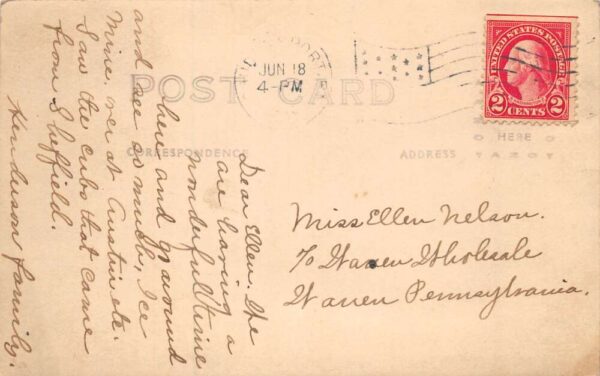 PORT
JUN 18
4-PM
UNITED STATES POSTAGE
2 CENTS 2
POST CARD
HERE
AZO
CORRESPONDENCE
ADDRESS
Dear Ellen. We
are having a
wonderful time
here and go around
and see so much, Ice
Mine. ver at Austin etc.
Saw the cubs that came
from Sheffield.
Henderson family.
Miss Ellen Nelson.
℅ Warren Wholesale
Warren Pennsylvania.